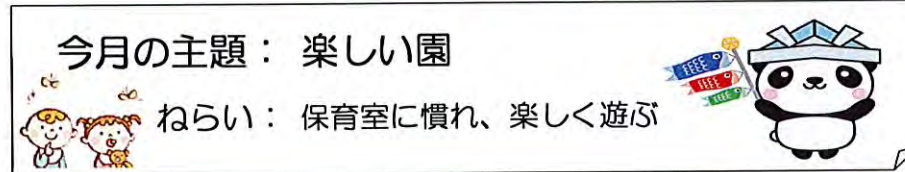 今月の主題： 楽しい園
ねらい： 保育室に慣れ、楽しく遊ぶ